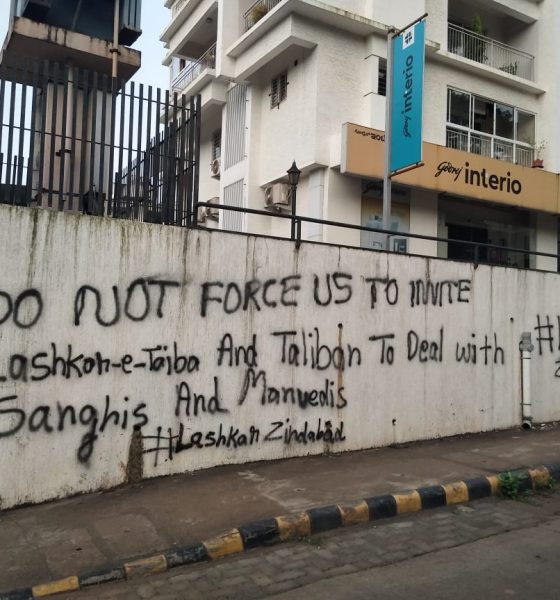 Godrej interio
Godrej interio
DO NOT FORCE US TO INVITE
Lashkar-e-Taiba And Taliban To Deal with
Sanghis And Manvedis
#Lashkar Zindabad
#